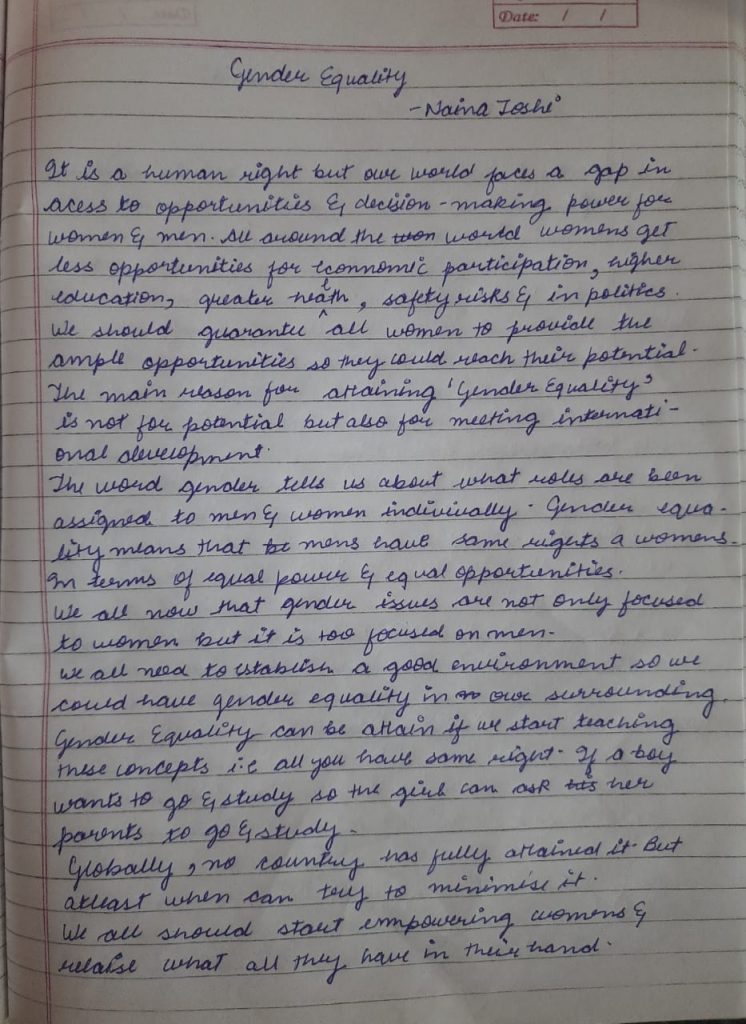 Date: / /
Gender Equality
- Naina Joshi
It is a human right but our world faces a gap in
acess to opportunities & decision-making power for
women & men. All around the world womens get
less opportunities for econnomic participation, higher
education, greater health, safety risks & in politics.
We should guarantee all women to provide the
ample opportunities so they could reach their potential.
The main reason for attaining 'Gender Equality'
is not for potential but also for meeting internati-
onal development.
The word gender tells us about what roles are been
assigned to men & women indiviually. Gender equa-
lity means that mens have same rights a womens.
In terms of equal power & equal opportunities.
We all now that gender issues are not only focused
to women but it is too focused on men.
We all need to establish a good environment so we
could have gender equality in our surrounding.
Gender Equality can be attain if we start teaching
these concepts i.e all you have same right. If a boy
wants to go & study so the girl can ask her
parents to go & study.
Globally, no country has fully attained it. But
atleast when can try to minimise it.
We all should start empowering womens &
relaise what all they have in their hand.